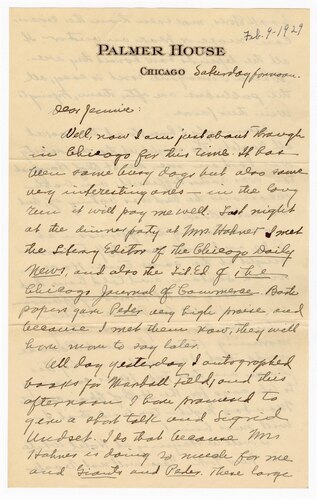 Feb. 9-1929
PALMER HOUSE
CHICAGO Saturday forenoon.
Dear Jennie:
Well, now I am just about through
in Chicago for this time. It has
been some busy days but also some
very interesting ones — in the long
run it will pay me well. Last night
at the dinner party at Mrs Hahner I met
the Literary Editor of the Chicago Daily
News, and also the Lit Ed of the
Chicago Journal of Commerce. Both
papers gave Peder very high praise and
because I met them now, they will
have more to say later.
All day yesterday I autographed
books for Marshall Field, and this
afternoon I have promised to
give a short talk and Sigrid
Undset. I do that because Mrs
Hahner is doing so much for me
and Giants and Peder. These large